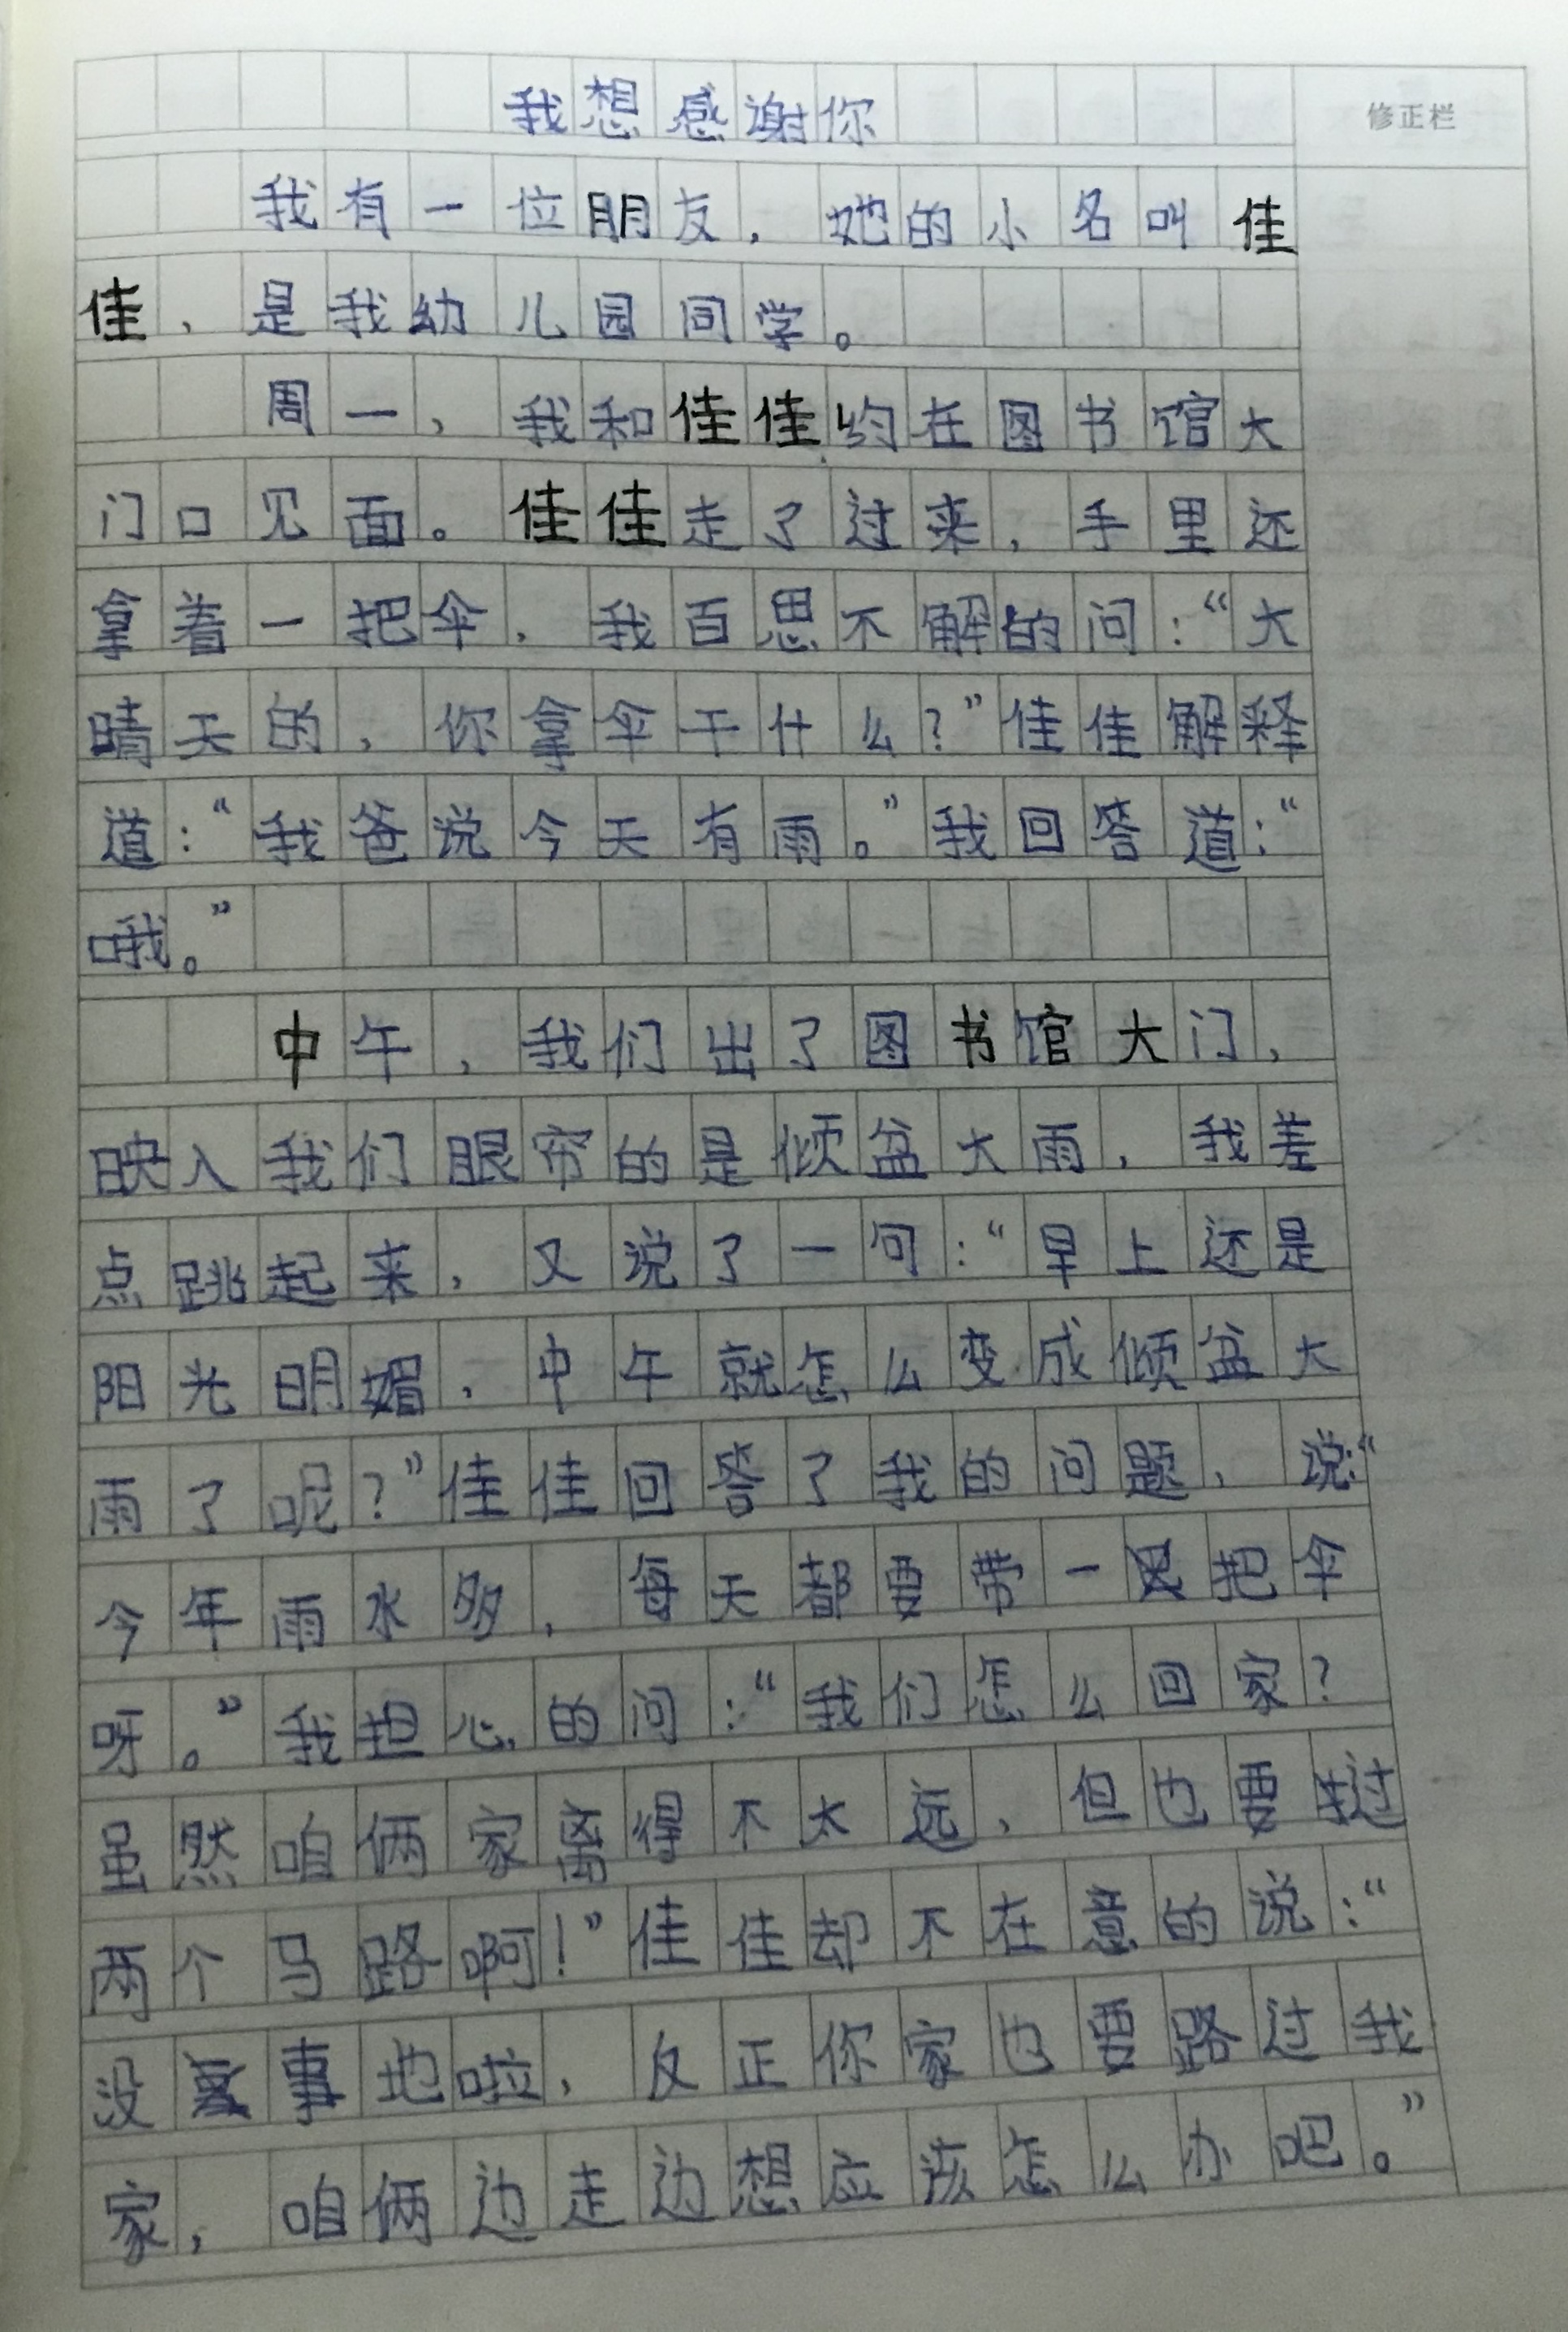 我想感谢你
修正栏
我有一位朋友，她的小名叫佳
佳，是我幼儿园同学。
周一，我和佳佳约在图书馆大
门口见面。佳佳走了过来，手里还
拿着一把伞，我百思不解的问：“大
晴天的，你拿伞干什么？”佳佳解释
道：“我爸说今天有雨。”我回答道：“
哦。”
中午，我们出了图书馆大门，
映入我们眼帘的是倾盆大雨，我差
点跳起来，又说了一句：“早上还是
阳光明媚，中午就怎么变成倾盆大
雨了呢？”佳佳回答了我的问题，说：“
今年雨水多，每天都要带一把伞
呀。”我担心的问：“我们怎么回家？
虽然咱俩家离得不太远，但也要过
两个马路啊！”佳佳却不在意的说：“
没事地啦，反正你家也要路过我
家，咱俩边走边想应该怎么办吧。”